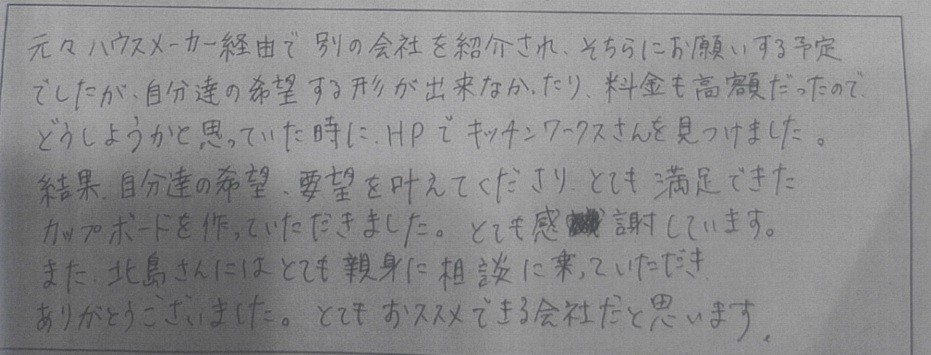 元々ハウスメーカー経由で別の会社を紹介され、そちらにお願いする予定
でしたが、自分達の希望する形が出来なかったり、料金も高額だったので、
どうしようかと思っていた時に、HPでキッチンワークスさんを見つけました。
結果、自分達の希望、要望を叶えてくださり、とても満足できた
カップボードを作っていただきました。とても感謝しています。
また、北島さんにはとても親身に相談に乗っていただき、
ありがとうございました。とてもおススメできる会社だと思います。